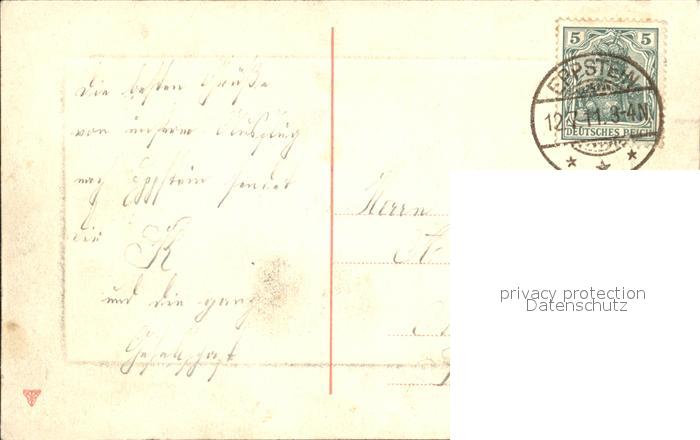 5 5
EPPSTEIN
12.7.11. 3-4N.
DEUTSCHES REICH
Die besten Grüße
von unserem Ausflug
nach Eppstein sendet
die
und die ganze
Gesellschaft
Herrn
privacy protection
Datenschutz